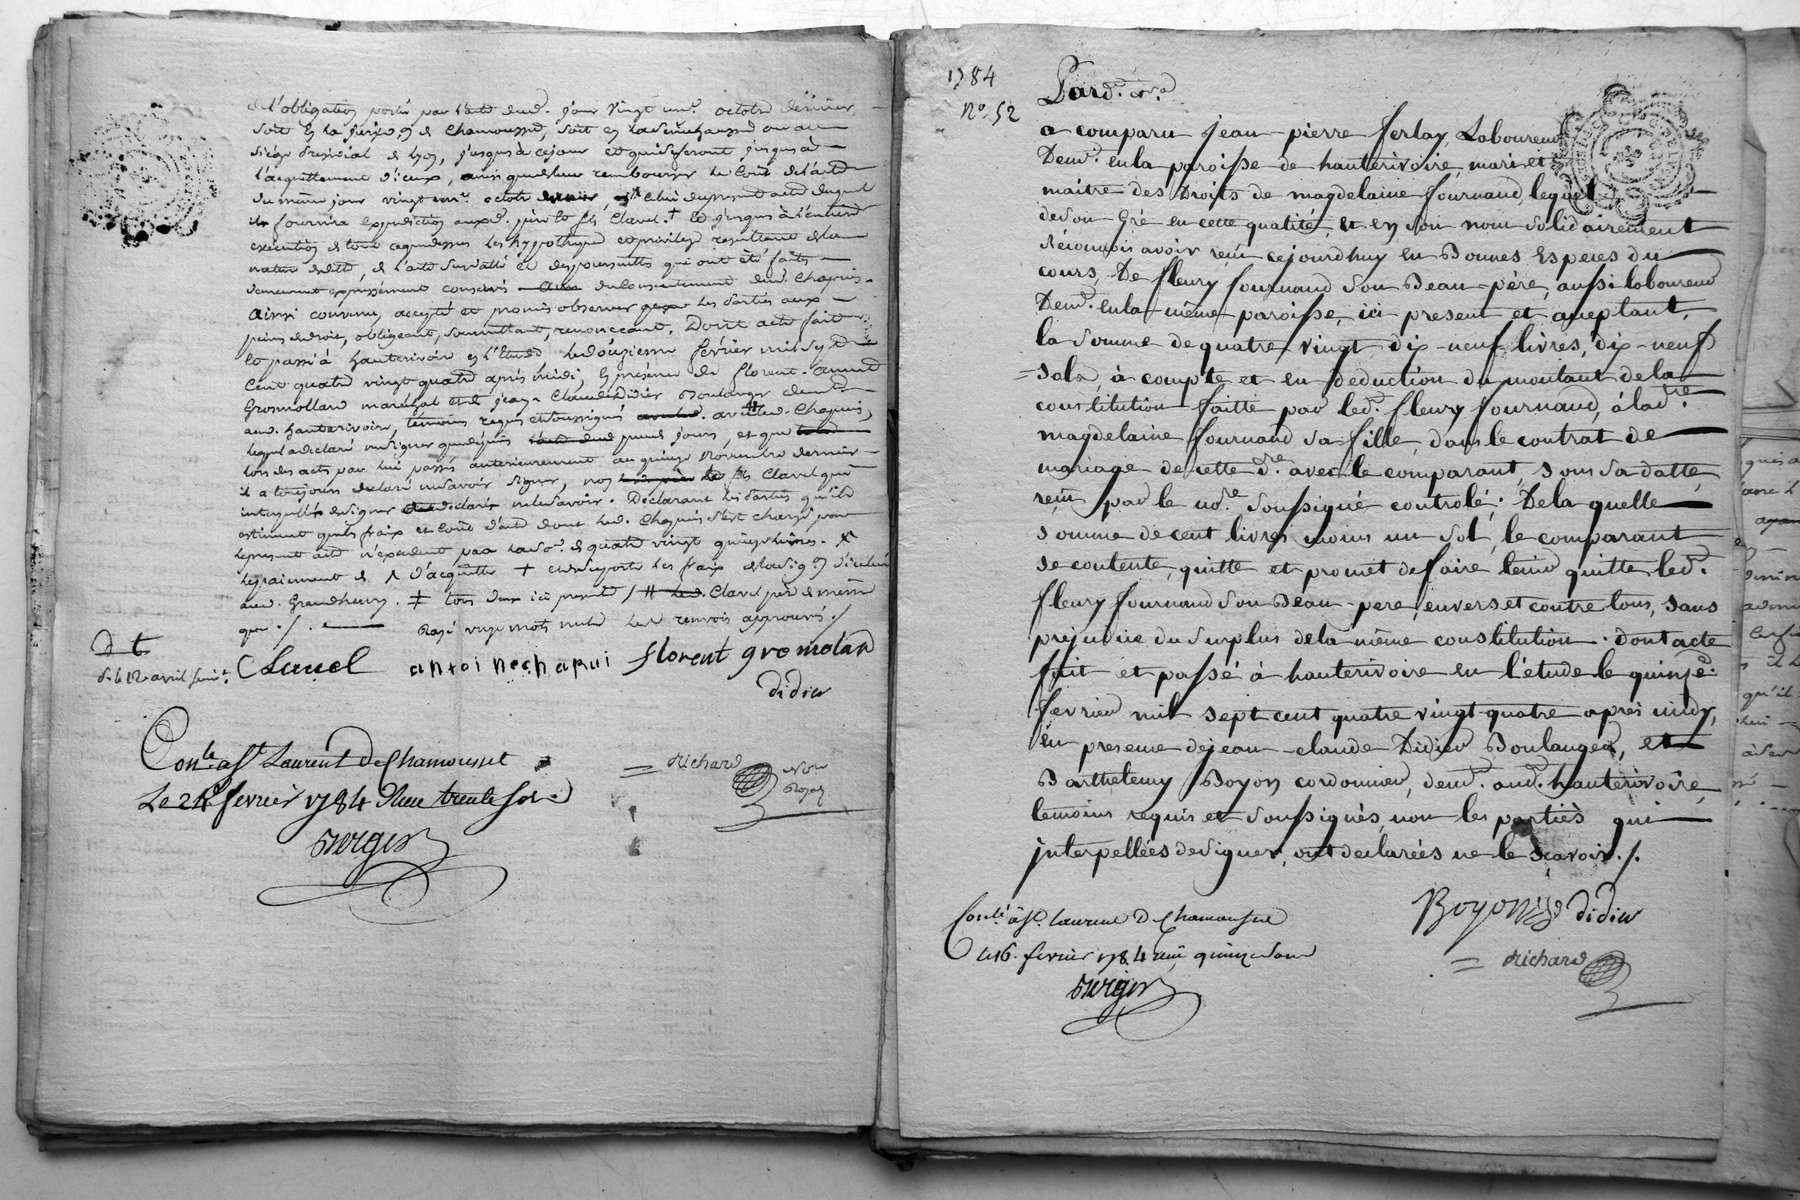 de l'obligation porté par l'acte dud. jour vingt un.e octobre dernier,
soit en la jurisd.on de Chamousset, soit en la Sénéchaussée ou au
siège présidial de lyon, jusques à ce jour et qui se feront jusques à
l'acquittement d'iceux, ainsi que de leur rembourser le coût de l'acte
du même jour vingt un.e octobre dernier, celui du present acte duquel
il fournira expedition auxd. père et fils Clavel. + et jusques à l'entiere
execution de tout ce que dessus les hypotheques et privileges resultants de la
nature de lad. dette, de l'acte surdatté et des poursuittes qui ont été faites
demeurent expressément conservés du consentement dud. Chapuis.
Ainsi convenu, accepté et promis observer par les parties aux
peines de droit, obligeant, soumettant, renonceant. Dont acte fait
et passé à hauterivoire en l'Etude le douzieme février mil sept
Cent quatre vingt quatre après midi, en présence de florent
Gromollard maréchal et de jean Claude Didier Boulanger dem.t
aud. hauterivoire, temoins requis et soussignés avec led. Chapuis,
lequel a déclaré ne signer que depuis peu de jours, et que
lors des actes par lui passés anterieurement au quinze novembre dernier
il a toujours declaré ne savoir signer, non led. fils Clavel qui
interpellé de signer a declaré ne le savoir. Declarant les parties qu'ils
estiment que les frais et coût d'acte dont led. Chapuis s'est chargé par le
present acte n'excedent pas la so.e de quatre vingt quinze livres.
le paiement & d'acquitter + et rapporter les frais
aud. Grandheury. ‡ tous deux ici presents / # Clavel père de même
que ./. Rayé vingt mots nuls les renvois approuvés ./.
d t
d. le 12 avril suiv.t
Clavel antoi nechapui florent gromolard
didier
Con.lé a S.t Laurent de Chamousset
Le 24 fevrier 1784 Reçu trente sols
Richard
Non.re
Royal
1784
N.o 52
Pard.t &.a
a comparu jean pierre ferlay, Laboureur
Dem.t en la paroisse de hauterivoire, mari et
maitre des Droits de magdelaine fournand, lequel
de son gré en cette qualité, et en son nom solidairement
réconnois avoir reçu cejourdhuy en Bonnes Especes du
cours, De fleury fournand Son Beau-père, aussi laboureur
Dem.t en la même paroisse, ici present et aceptant,
la somme de quatre vingt dix-neuf livres, dix-neuf
sols, à compte et en deduction du montant de la
constitution faitte par led.t fleury fournand, à lad.te
magdelaine fournand sa fille, dans le contrat de
mariage de cette d.re avec le comparant, sous sa datte,
reçu par le no.re soussigné controlé; De la quelle
somme de cent livres moins un sol, le comparant
se contente, quitte et promet de faire tenir quitte led.
fleury fournand son Beau-pere, envers et contre tous, sans
prejudice du surplus de la même constitution. Dont acte
fait et passé à hauterivoire en l'étude le quinze
fevrier mil sept cent quatre vingt quatre apres midy,
en presence de jean-claude Didier Boulanger, et
Barthelemy Boyon cordonnier, dem.t aud.t hauterivoire,
temoins requis et soussignés, non les parties qui
interpellées de signer, ont declarées ne le sçavoir ./.
Boyon didier
Con.lé à S.t Laurent D Chamousset
le 16. fevrier 1784 reçu quinze sous
Richard